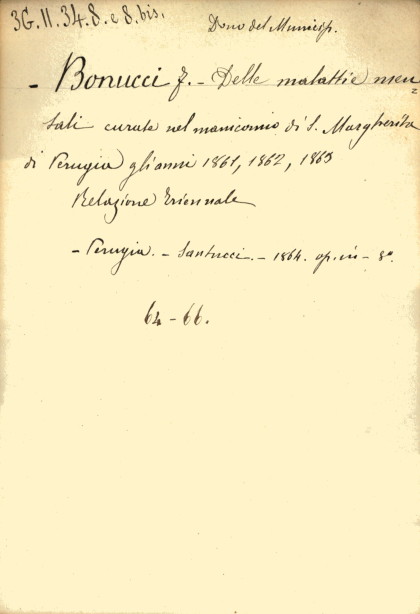 3G.II.34.8.e 8.bis.
Dono del Municip.
- Bonucci F. - Delle malattie men=
tali curate nel manicomio di S. Margherita
di Perugia gli anni 1861, 1862, 1863
Relazione triennale
- Perugia. - Santucci. - 1864. op. in - 8°
64 - 66.